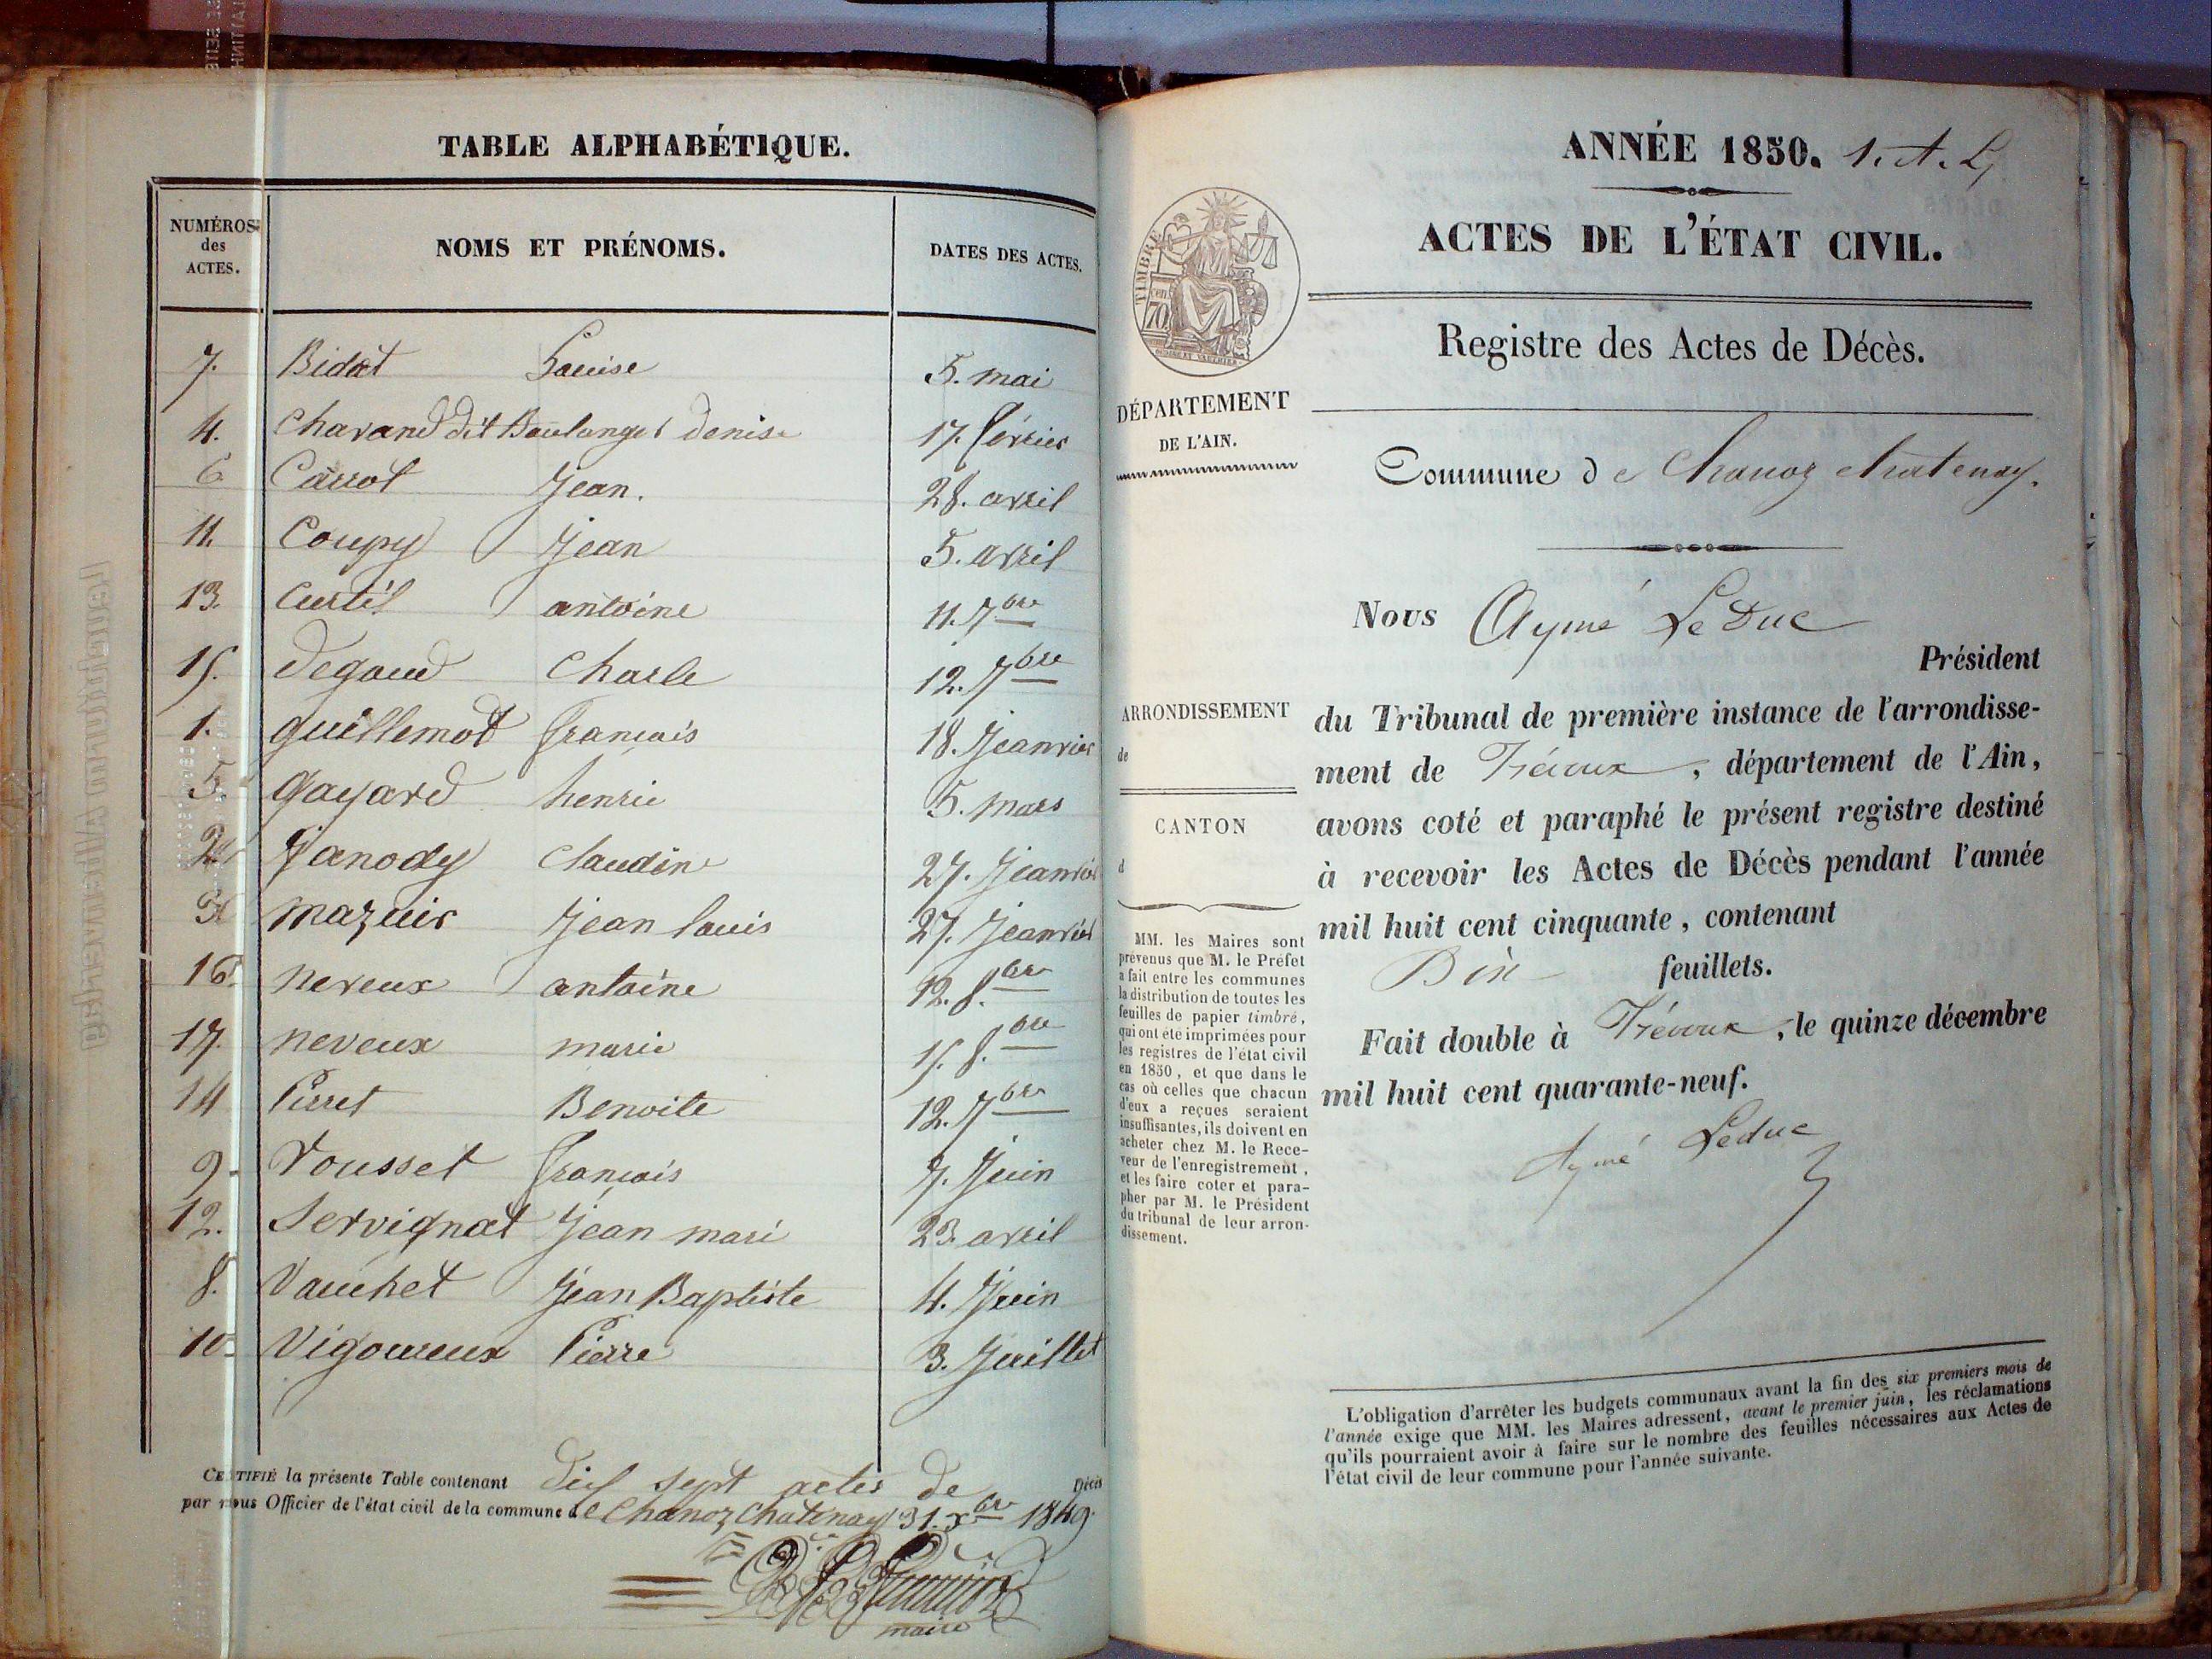 TABLE ALPHABÉTIQUE.
NUMÉROS des ACTES. NOMS ET PRÉNOMS. DATES DES ACTES.
7. Bidat Louise 5. mai
4. Chavand dit Boulanger denise 17. février
6 Carrot Jean. 28. avril
11. Coupy Jean 5. avril
13. Curtil antoine 11. 7bre
15. degoud Charle 12. 7bre
1. guillemot francois 18. Jeanvier
5. gayard henrie 5. mars
2 Janody Claudine 27. Jeanvier
3 mazuir Jean louis 27. Jeanvier
16. neveux antoine 12. 8.bre
17. neveux marie 15. 8.bre
14 Perret Benoite 12. 7bre
9. Rousset francois 7. Juin
12. Servignat Jean mari 23. avril
8. Vauchet Jean Baptiste 4. Juin
10. Vigoureux Pierre 3. Juillet
CERTIFIÉ la présente Table contenant dix sept actes de Décès
par nous Officier de l'état civil de la commune de Chanoz Chatenay 31. xbre 1849.
maire
ANNÉE 1850. 1. A. L,
ACTES DE L'ÉTAT CIVIL.
TIMBRE
70
cen
Registre des Actes de Décès.
DÉPARTEMENT
DE L'AIN.
Commune de Chanoz chatenay.
Nous Aymé LeDuc
Président
du Tribunal de première instance de l'arrondisse-
ment de Trévoux, département de l'Ain,
avons coté et paraphé le présent registre destiné
à recevoir les Actes de Décès pendant l'année
mil huit cent cinquante, contenant
feuillets.
Fait double à Trévoux, le quinze décembre
mil huit cent quarante-neuf.
Aymé Leduc
ARRONDISSEMENT
de
CANTON
d
MM. les Maires sont
prévenus que M. le Préfet
a fait entre les communes
la distribution de toutes les
feuilles de papier timbré,
qui ont été imprimées pour
les registres de l'état civil
en 1850, et que dans le
cas où celles que chacun
d'eux a reçues seraient
insuffisantes, ils doivent en
acheter chez M. le Rece-
veur de l'enregistrement,
et les faire coter et para-
pher par M. le Président
du tribunal de leur arron-
dissement.
L'obligation d'arrêter les budgets communaux avant la fin des six premiers mois de
l'année exige que MM. les Maires adressent, avant le premier juin, les réclamations
qu'ils pourraient avoir à faire sur le nombre des feuilles nécessaires aux Actes de
l'état civil de leur commune pour l'année suivante.